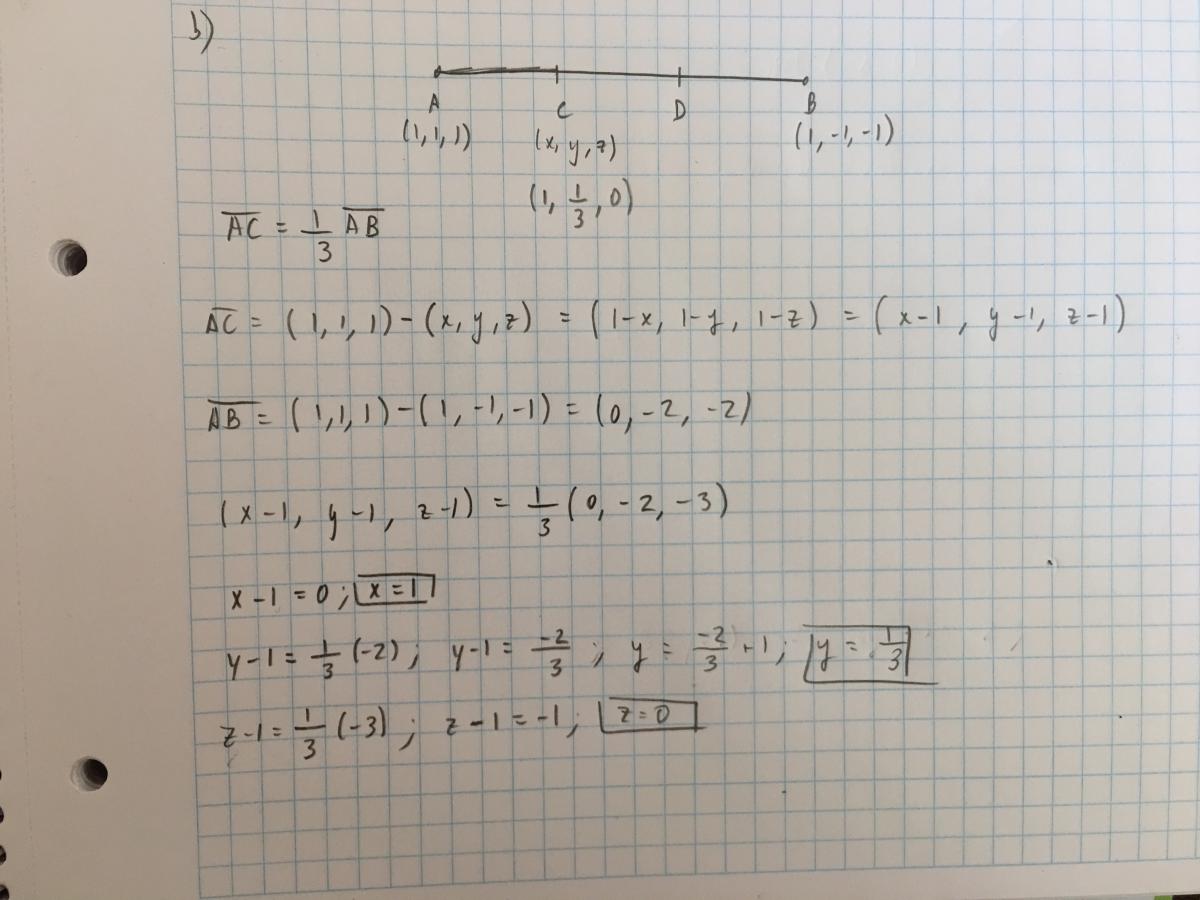 b)
A C D B
(1,1,1) (x,y,z) (1,-1,-1)
(1, 1/3, 0)
A̅C̅ = 1/3 A̅B̅
A̅C̅ = (1,1,1)-(x,y,z) = (1-x, 1-y, 1-z) = (x-1, y-1, z-1)
A̅B̅ = (1,1,1)-(1,-1,-1) = (0,-2,-2)
(x-1, y-1, z-1) = 1/3 (0,-2,-3)
x-1=0; x=1
y-1 = 1/3 (-2); y-1 = -2/3; y = -2/3 +1; y = 1/3
z-1 = 1/3 (-3); z-1=-1; z=0